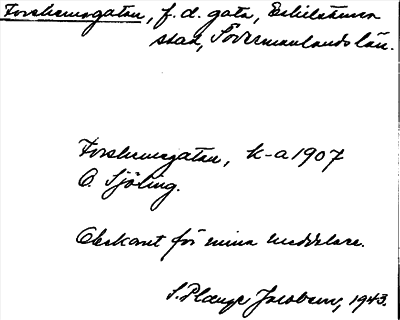 Forskarsgatan, f.d. gata, Eskilstuna
stad, Södermanlands län.
Forskarsgatan, k-a 1907
O. Sjöling.
Obekant för mina meddelare.
S. Plænge Jacobson, 1943.